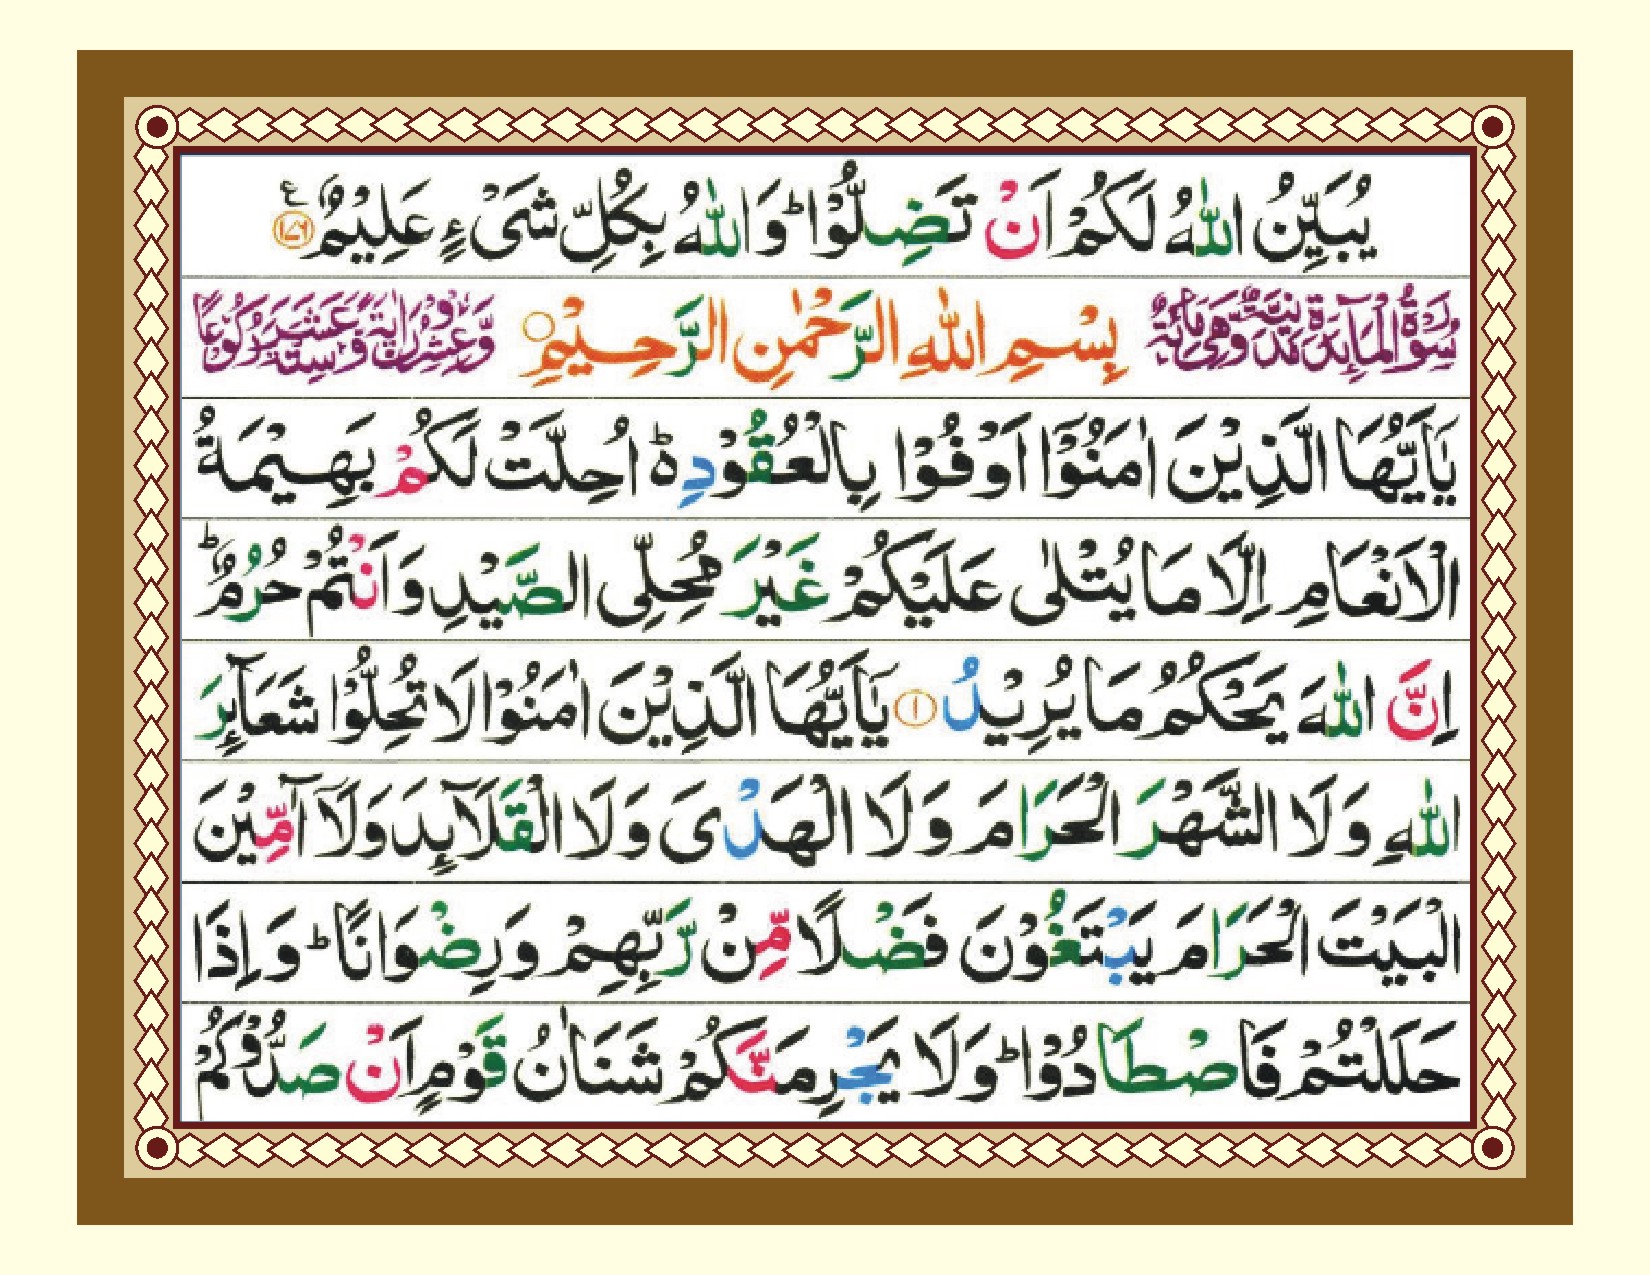 يُبَيِّنُ اللّٰهُ لَكُمْ اَنْ تَضِلُّوْا ؕ وَاللّٰهُ بِكُلِّ شَىْءٍ عَلِيْمٌ ۧ ﴿۱۷۶﴾
سُوْرَةُ الْمَآئِدَةِ مَدَنِيَّةٌ وَّهِىَ مِائَةٌ بِسْمِ اللّٰهِ الرَّحْمٰنِ الرَّحِيْمِ ○ وَّعِشْرُوْنَ اٰيَةً وَّسِتَّةَ عَشَرَ رُكُوْعًا
يٰۤاَيُّهَا الَّذِيْنَ اٰمَنُوْۤا اَوْفُوْا بِالْعُقُوْدِ ؕ۬ اُحِلَّتْ لَكُمْ بَهِيْمَةُ
الْاَنْعَامِ اِلَّا مَا يُتْلٰى عَلَيْكُمْ غَيْرَ مُحِلِّى الصَّيْدِ وَاَنْتُمْ حُرُمٌ ؕ
اِنَّ اللّٰهَ يَحْكُمُ مَا يُرِيْدُ ﴿۱﴾ يٰۤاَيُّهَا الَّذِيْنَ اٰمَنُوْا لَا تُحِلُّوْا شَعَآئِرَ
اللّٰهِ وَلَا الشَّهْرَ الْحَرَامَ وَلَا الْهَدْىَ وَلَا الْقَلَآئِدَ وَلَاۤ آمِّيْنَ
الْبَيْتَ الْحَرَامَ يَبْتَغُوْنَ فَضْلًا مِّنْ رَّبِّهِمْ وَرِضْوَانًا ؕ وَاِذَا
حَلَلْتُمْ فَاصْطَادُوْا ؕ وَلَا يَجْرِمَنَّكُمْ شَنَاٰنُ قَوْمٍ اَنْ صَدُّوْكُمْ